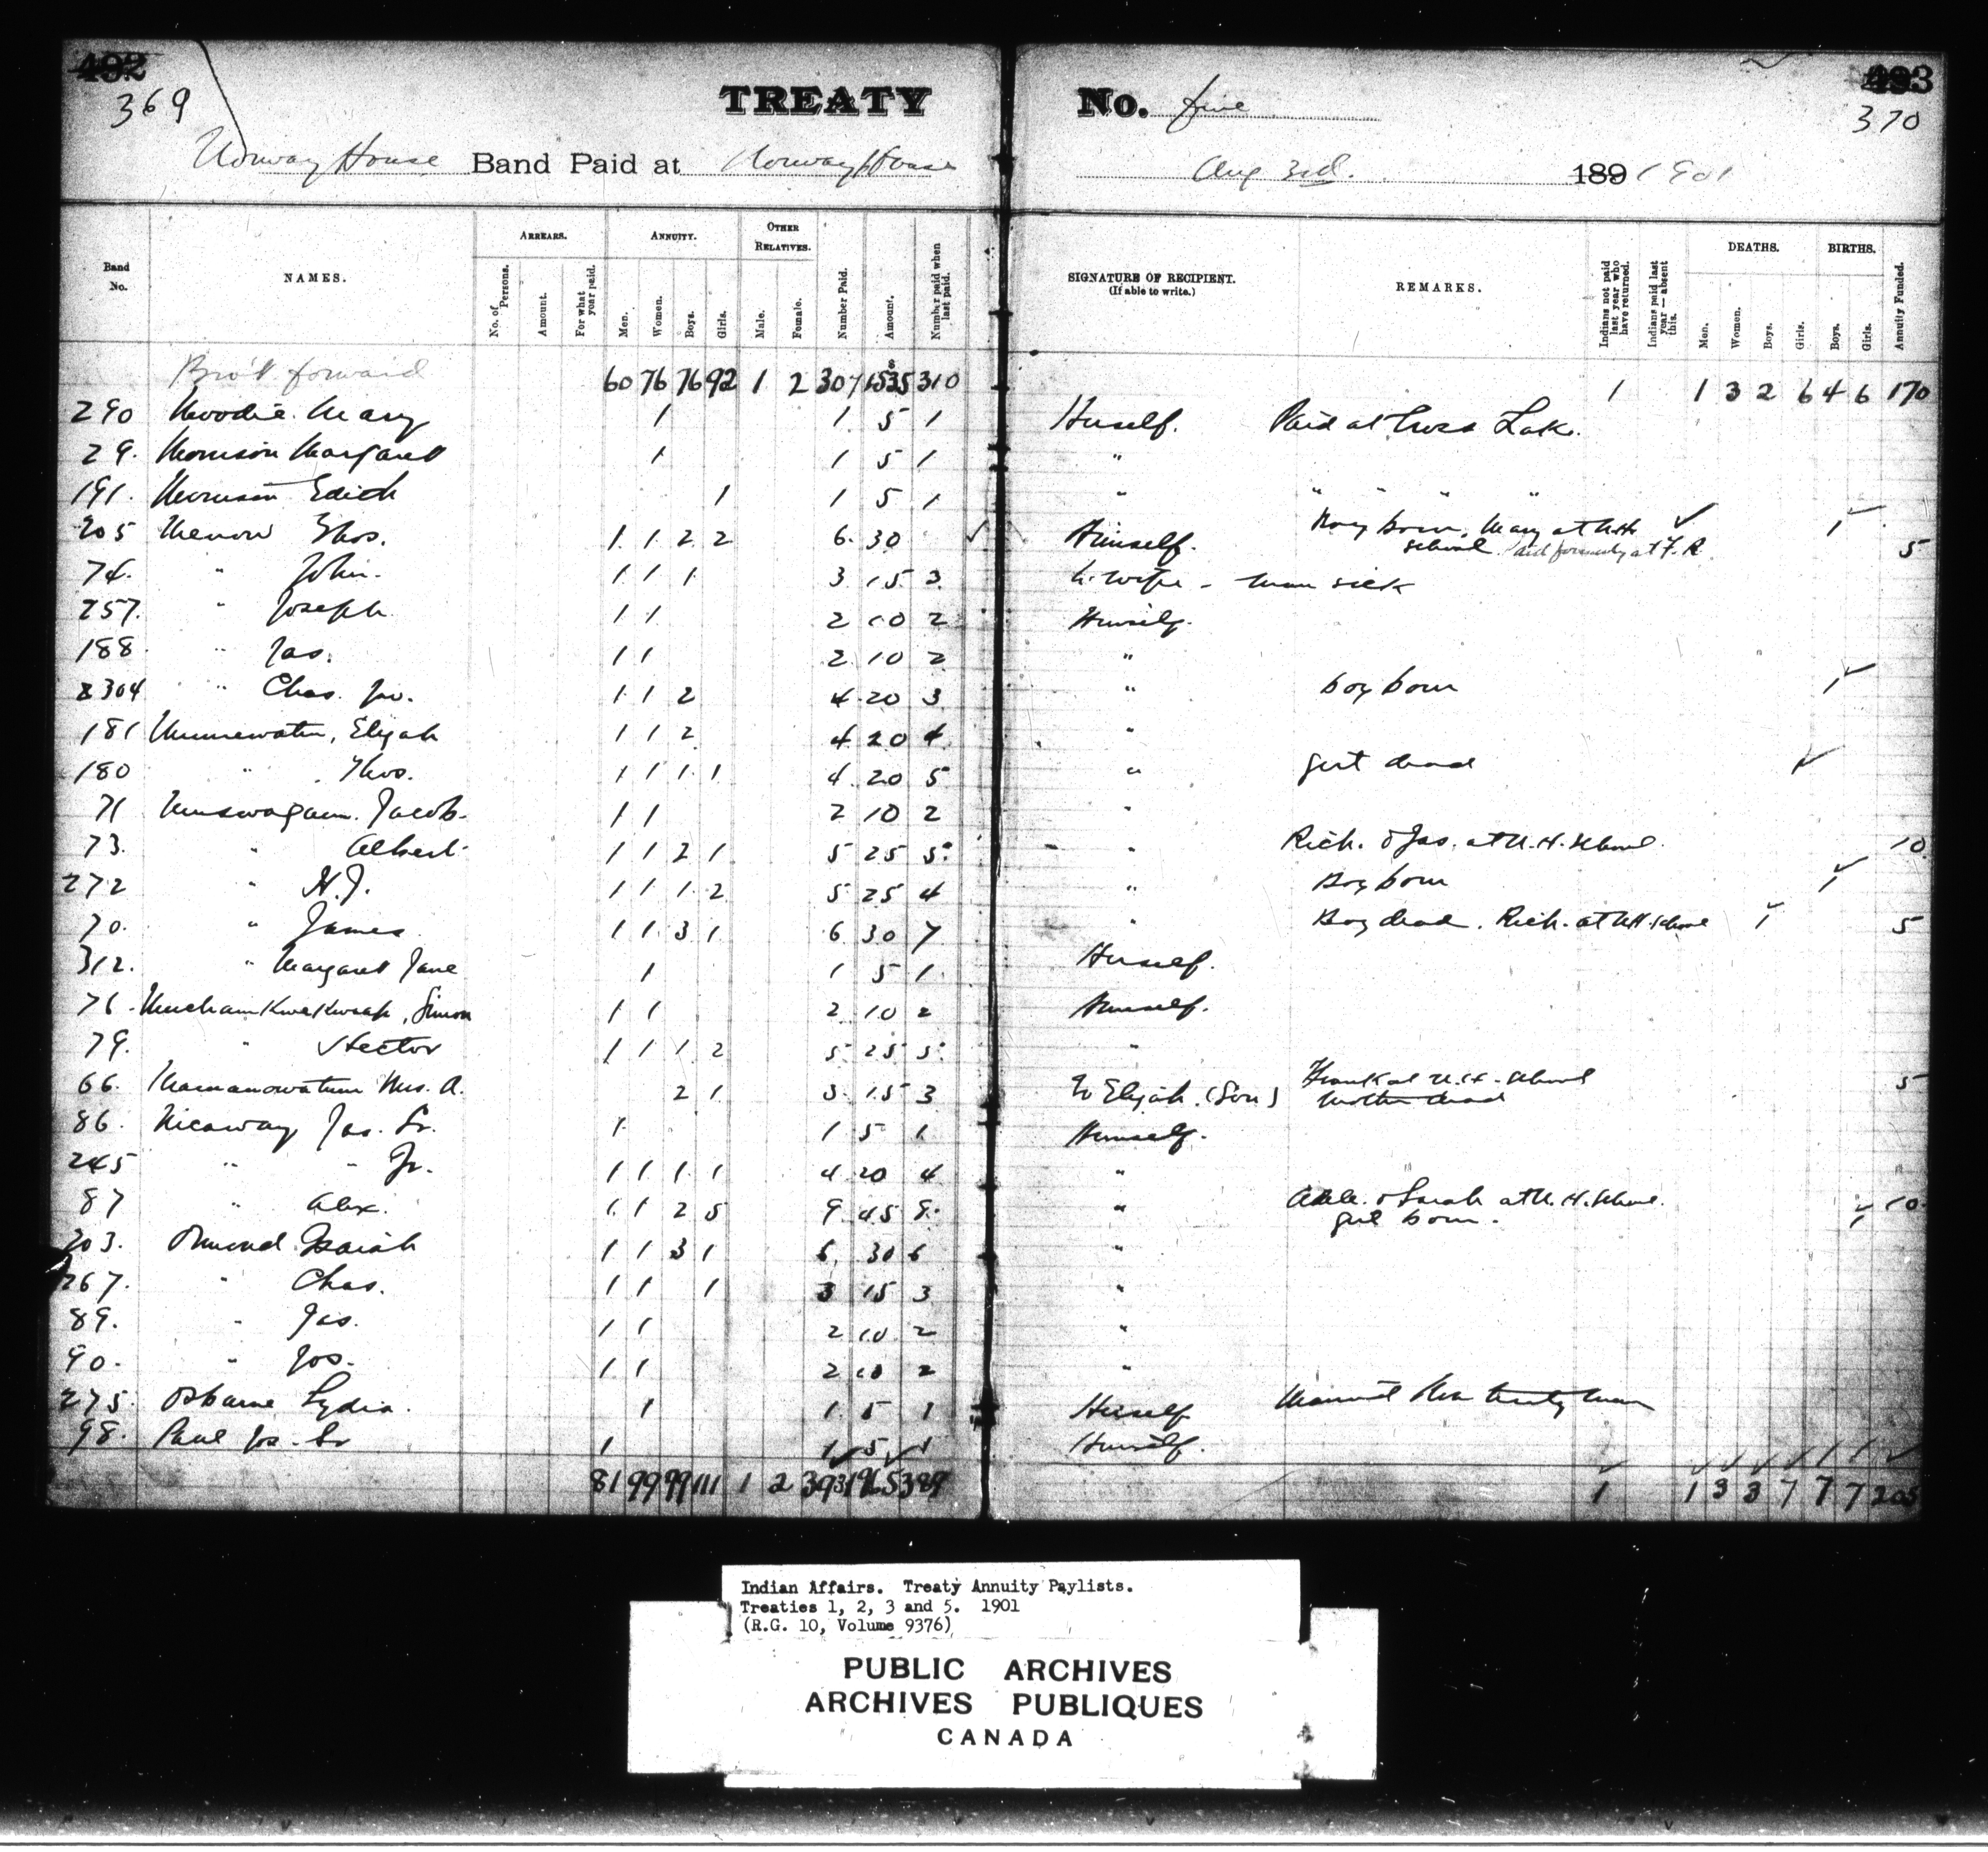 492 493
369 370
TREATY No. five
Norway House Band Paid at Norway House Aug 3rd. 189 1901
Band No. NAMES. ARREARS. No. of Persons. Amount. For what year paid. ANNUITY. Men. Women. Boys. Girls. OTHER RELATIVES. Male. Female. Number Paid. Amount. Number paid when last paid. SIGNATURE OF RECIPIENT. (If able to write.) REMARKS. Indians not paid last year who have returned. Indians paid last year — absent this. DEATHS. Men. Women. Boys. Girls. BIRTHS. Boys. Girls. Annuity Funded.
Bro't forward 60 76 76 92 1 2 307 $1535 310 1 1 3 2 6 4 6 170
290 Moodie Mary 1 1 5 1 Herself. Paid at Cross Lake.
29. Morrison Margaret 1 1 5 1 "
191. Morrison Edith 1 1 5 1 " " " " "
205 Menow Thos. 1 1 2 2 6 30 ✓ Himself. Boy born. Mary at N.H. ✓ school Paid formerly at F. R. 1 5
74. " John. 1 1 1 3 15 3 To wife - man sick
257. " Joseph 1 1 2 10 2 Himself.
188 " Jas. 1 1 2 10 2 "
304 " Chas. Jr. 1 1 2 4 20 3 " boy born 1
181 , Elijah 1 1 2 4 20 4 "
180 " Thos. 1 1 1 1 4 20 5 " girl dead 1
71 Muswagan. Jacob. 1 1 2 10 2 "
73. " Albert 1 1 2 1 5 25 5 " Rich. & Jas. at N.H. School. 10
272 " H.J. 1 1 1 2 5 25 4 " Boy born 1
70. " James 1 1 3 1 6 30 7 " Boy dead. Rich. at N.H. School 1 5
312. " Margaret Jane 1 1 5 1 Herself.
76. , Simon 1 1 2 10 2 Himself.
79. " Hector 1 1 1 2 5 25 5 "
66. Mrs. A. 2 1 3 15 3 To Elijah. (Son) Frank at N.H. School 5
Mother dead
86. Nicaway Jas. Sr. 1 1 5 1 Himself.
245 " " Jr. 1 1 1 1 4 20 4 "
87 " Alex. 1 1 2 5 9 45 8 " & Sarah at N.H. School. girl born. 1 10
203. Ormond Isaiah 1 1 3 1 6 30 6 "
267. " Chas. 1 1 1 3 15 3 "
89. " Jas. 1 1 2 10 2 "
90. " Jos. 1 1 2 10 2 "
275. Osborne Lydia. 1 1 5 1 Herself Married Non treaty man
98. Paul Jos. Sr 1 1 5 1 Himself.
81 99 99 111 1 2 393 1965 389 1 1 3 3 7 7 7 205
Indian Affairs. Treaty Annuity Paylists.
Treaties 1, 2, 3 and 5. 1901
(R.G. 10, Volume 9376)
PUBLIC ARCHIVES
ARCHIVES PUBLIQUES
CANADA